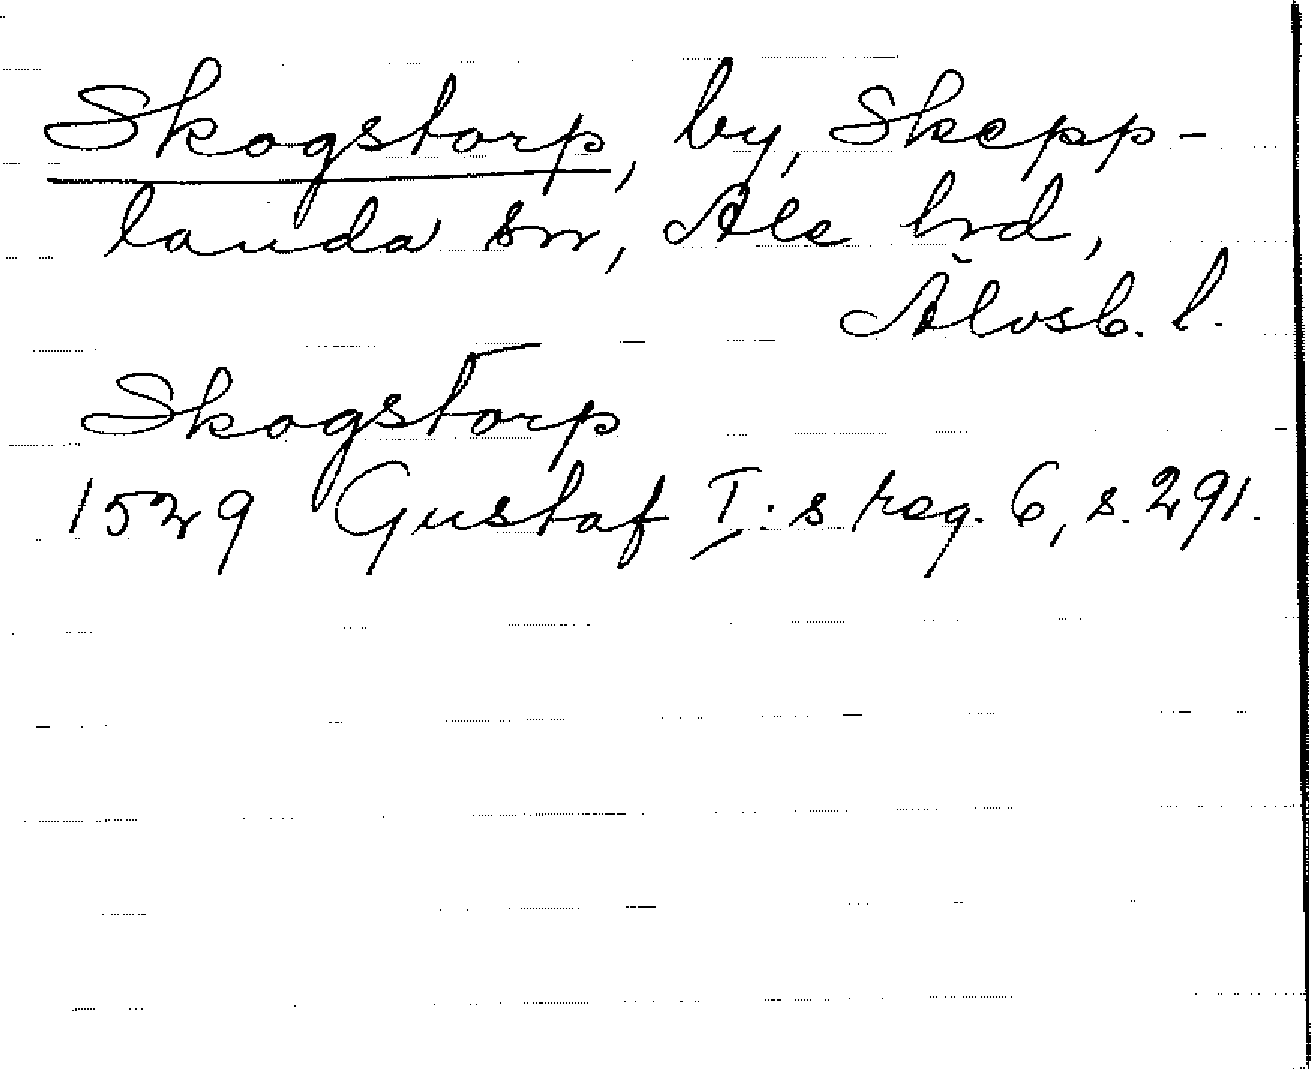 Skogstorp, by, Skepp-
landa sn, Ale hrd,
Älvsb. l.
Skogstorp
1529 Gustaf I:s reg. 6, s. 291.